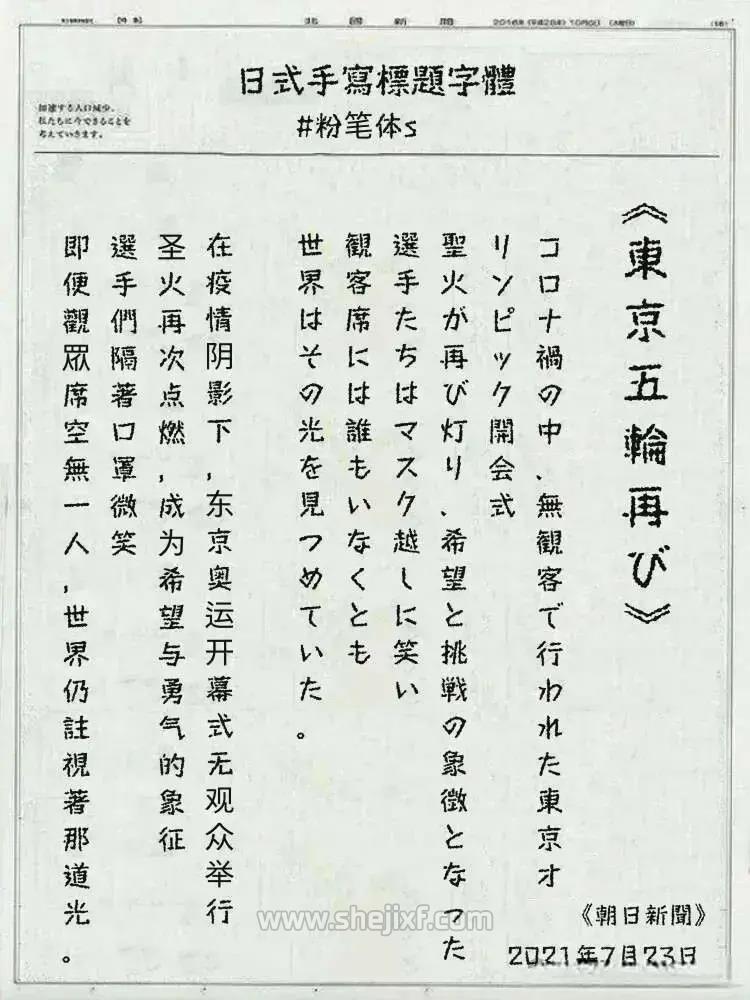 北國新聞
2016年(平成28年)10月5日(水曜日)
日式手寫標題字體
#粉笔体s
加速する人口減少。
私たちに今できることを
考えていきます。
《東京五輪再び》
コロナ禍の中、無観客で行われた東京オ
リンピック開会式
聖火が再び灯り、希望と挑戦の象徴となった
選手たちはマスク越しに笑い
観客席には誰もいなくとも
世界はその光を見つめていた。
在疫情阴影下,东京奥运开幕式无观众举行
圣火再次点燃,成为希望与勇气的象征
選手們隔著口罩微笑
即便觀眾席空無一人,世界仍註視著那道光。
《朝日新聞》
2021年7月23日
www.shejixf.com